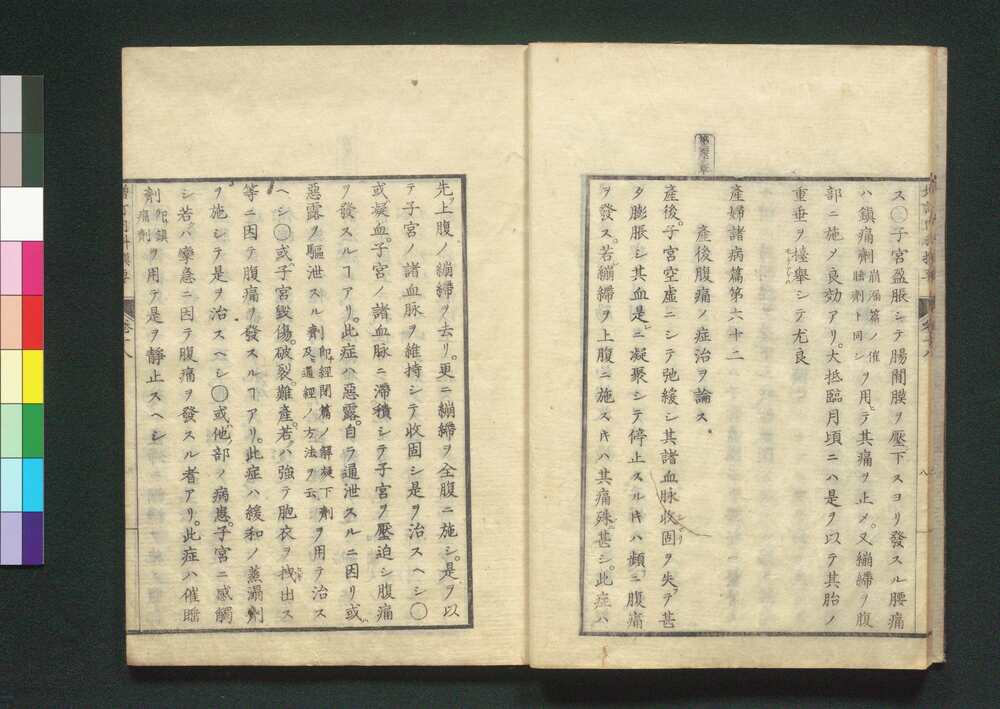 ス〇子宮盈脹シテ腸間膜ヲ壓下スヨリ發スル腰痛
ハ鎮痛劑崩漏篇ノ催膸劑ト同シヲ用テ其痛ヲ止メ又繃縛ヲ腹
部ニ施メ良効アリ。大抵臨月頃ニハ是ヲ以テ其胎ノ
重垂ヲ擡擧シテ尤良
産婦諸病篇第六十二
産後腹痛ノ症治ヲ論ス
産後。子宮空虚ニシテ弛緩シ其諸血脉收固ヲ失テ甚
タ膨脹シ其血是ニ凝聚シテ停止スルキハ頻ニ腹痛
ヲ發ス。若繃縛ヲ上腹ニ施スキハ其痛殊甚シ。此症ハ
先上腹ノ繃縛ヲ去リ。更ニ繃縛ヲ全腹ニ施シ。是ヲ以
テ子宮ノ諸血脉ヲ維持シテ收固シ是ヲ治スヘシ〇
或凝血。子宮ノ諸血脉ニ滯積シテ子宮ヲ壓迫シ腹痛
ヲ發スルヿアリ。此症ハ惡露。自ラ通泄スルニ因リ或
惡露ノ驅泄スル劑即經閉篇ノ解凝下劑及ヒ通經ノ方法ヲ云ヲ用テ治ス
ヘシ〇或子宮毀傷。破裂。難産。若ハ強テ胞衣ヲ拽出ス
等ニ因テ腹痛ヲ發スルヿアリ。此症ハ緩和ノ蒸溻劑
ヲ施シテ是ヲ治スヘシ〇或他部ノ病患。子宮ニ感觸
シ若ハ攣急ニ因テ腹痛ヲ發スル者アリ。此症ハ催膸
劑即鎮痛劑ヲ用テ是ヲ靜止スヘシ